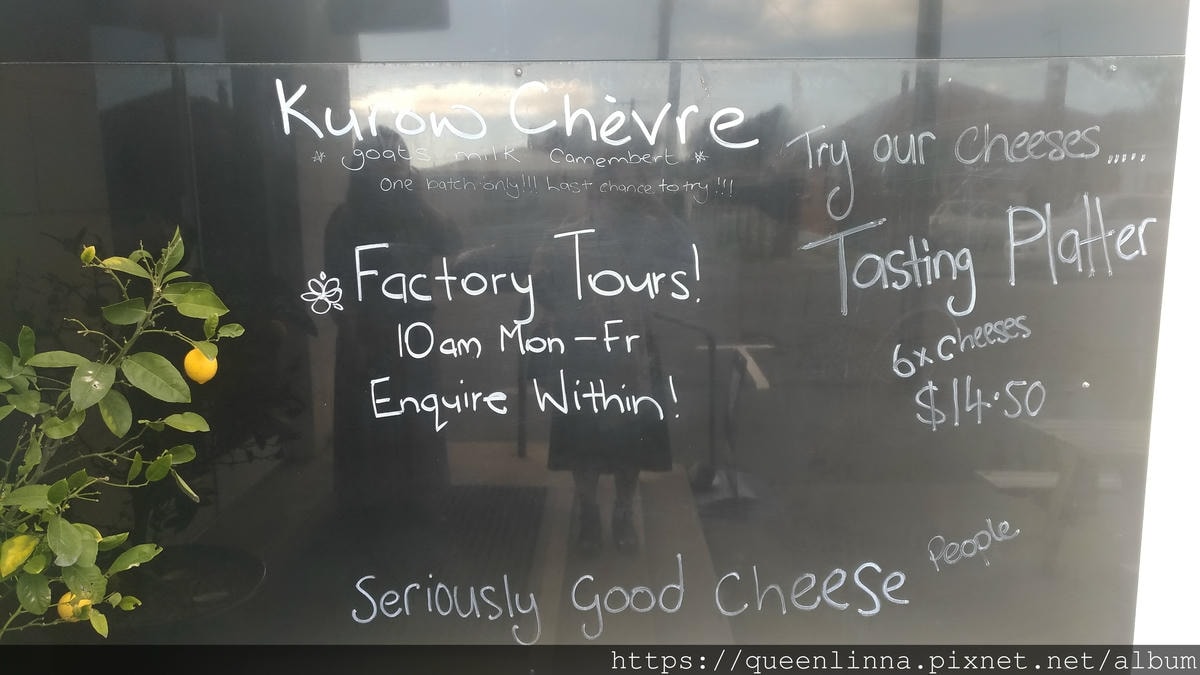 Kurow Chèvre
* goats milk Camembert *
One batch only!!! Last chance to try!!!
Factory Tours!
10am Mon-Fr
Enquire Within!
Try our Cheeses.....
Tasting Platter
6x cheeses
$14.50
Seriously Good Cheese People
https://queenlinna.pixnet.net/album